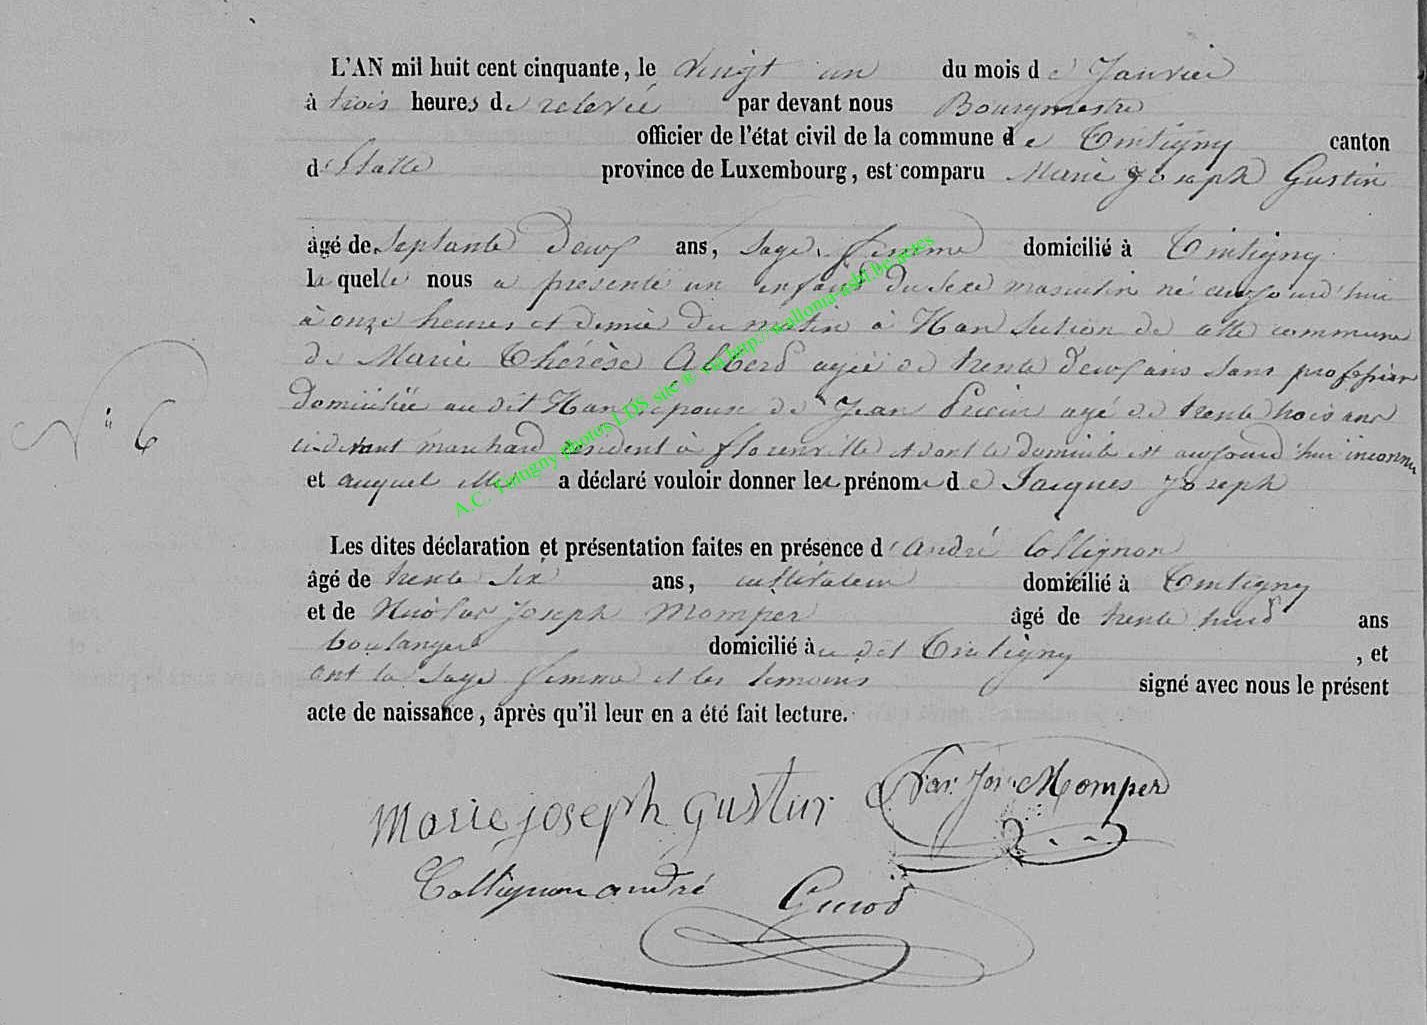 L'AN mil huit cent cinquante, le vingt un du mois de Janvier
à trois heures de relevée par devant nous Bourgmestre
officier de l'état civil de la commune de Tintigny canton
d'Etalle province de Luxembourg, est comparu Marie Joseph Gustin
âgé de Septante deux ans, Sage femme domicilié à Tintigny
la quelle nous a présenté un enfant du sexe masculin né aujourd'hui
à onze heures et demie du matin à Han Section de cette commune
de Marie Thérèse Alberd agée de trente deux ans sans profession
domiciliée au dit Han épouse de Jean Prieur agé de trente trois ans
ci devant marchand résident à florenville et dont le domicile est aujourd'hui inconnu
et auquel elle a déclaré vouloir donner les prénoms de Jacques Joseph
Les dites déclaration et présentation faites en présence d'André Collignon
âgé de trente six ans, instituteur domicilié à Tintigny
et de Nicolas Joseph Momper âgé de trente huit ans
boulanger domicilié au dit Tintigny , et
ont la sage femme et les témoins signé avec nous le présent
acte de naissance, après qu'il leur en a été fait lecture.
N° 6
marie joseph gustin Nas. Jos. Momper
Collignon andré
A.C. Tintigny photos LDS site g via http://wallonia-asbl.be/actes